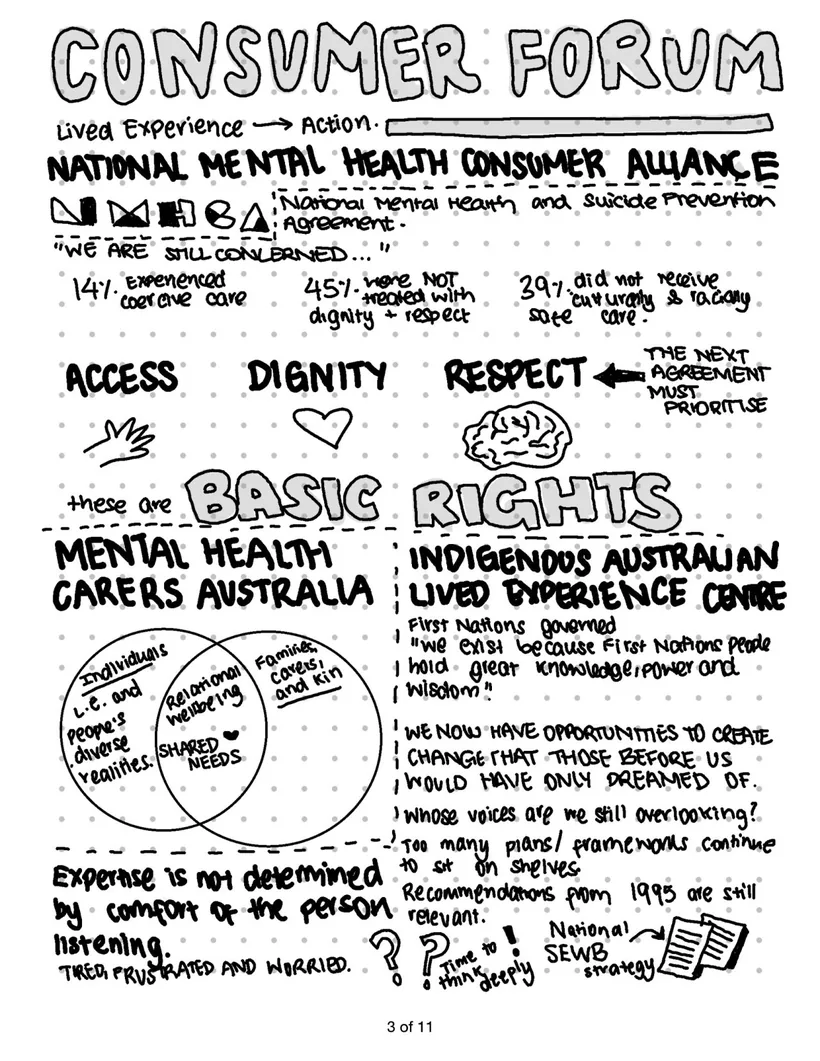 CONSUMER FORUM
Lived Experience → Action.
NATIONAL MENTAL HEALTH CONSUMER ALLIANCE
NMHCA
National Mental Health and Suicide Prevention
Agreement.
"WE ARE STILL CONCERNED..."
14% Experienced
coercive care
45% were NOT
treated with
dignity + respect
39% did not receive
culturally & racially
safe care.
ACCESS DIGNITY RESPECT
THE NEXT
AGREEMENT
MUST
PRIORITISE
these are BASIC RIGHTS
MENTAL HEALTH
CARERS AUSTRALIA
Individuals
L.E. and
people's
diverse
realities.
Relational
wellbeing
SHARED
NEEDS
Families,
carers,
and kin
Expertise is not determined
by comfort of the person
listening.
TIRED, FRUSTRATED AND WORRIED.
INDIGENOUS AUSTRALIAN
LIVED EXPERIENCE CENTRE
First Nations governed
"we exist because First Nations people
hold great knowledge, power and
wisdom"
WE NOW HAVE OPPORTUNITIES TO CREATE
CHANGE THAT THOSE BEFORE US
WOULD HAVE ONLY DREAMED OF.
Whose voices are we still overlooking?
Too many plans/ frameworks continue
to sit on shelves.
Recommendations from 1995 are still
relevant.
? ? !
Time to
think deeply
National
SEWB
strategy
3 of 11